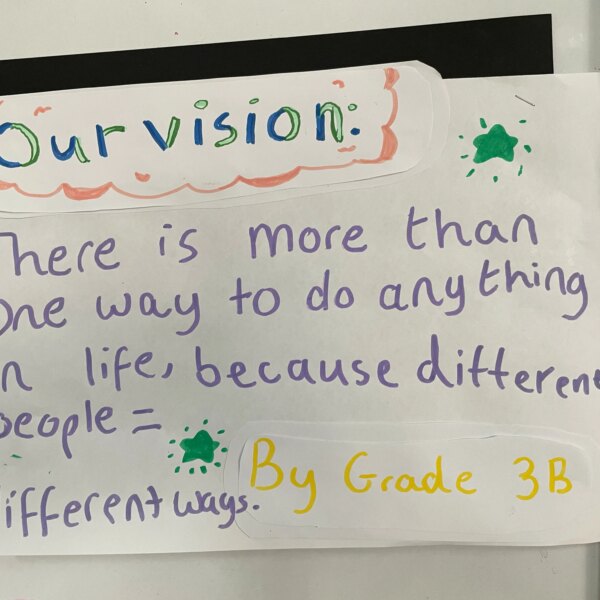 Our vision:
There is more than
One way to do anything
in life, because different
people =
different ways.
By Grade 3B